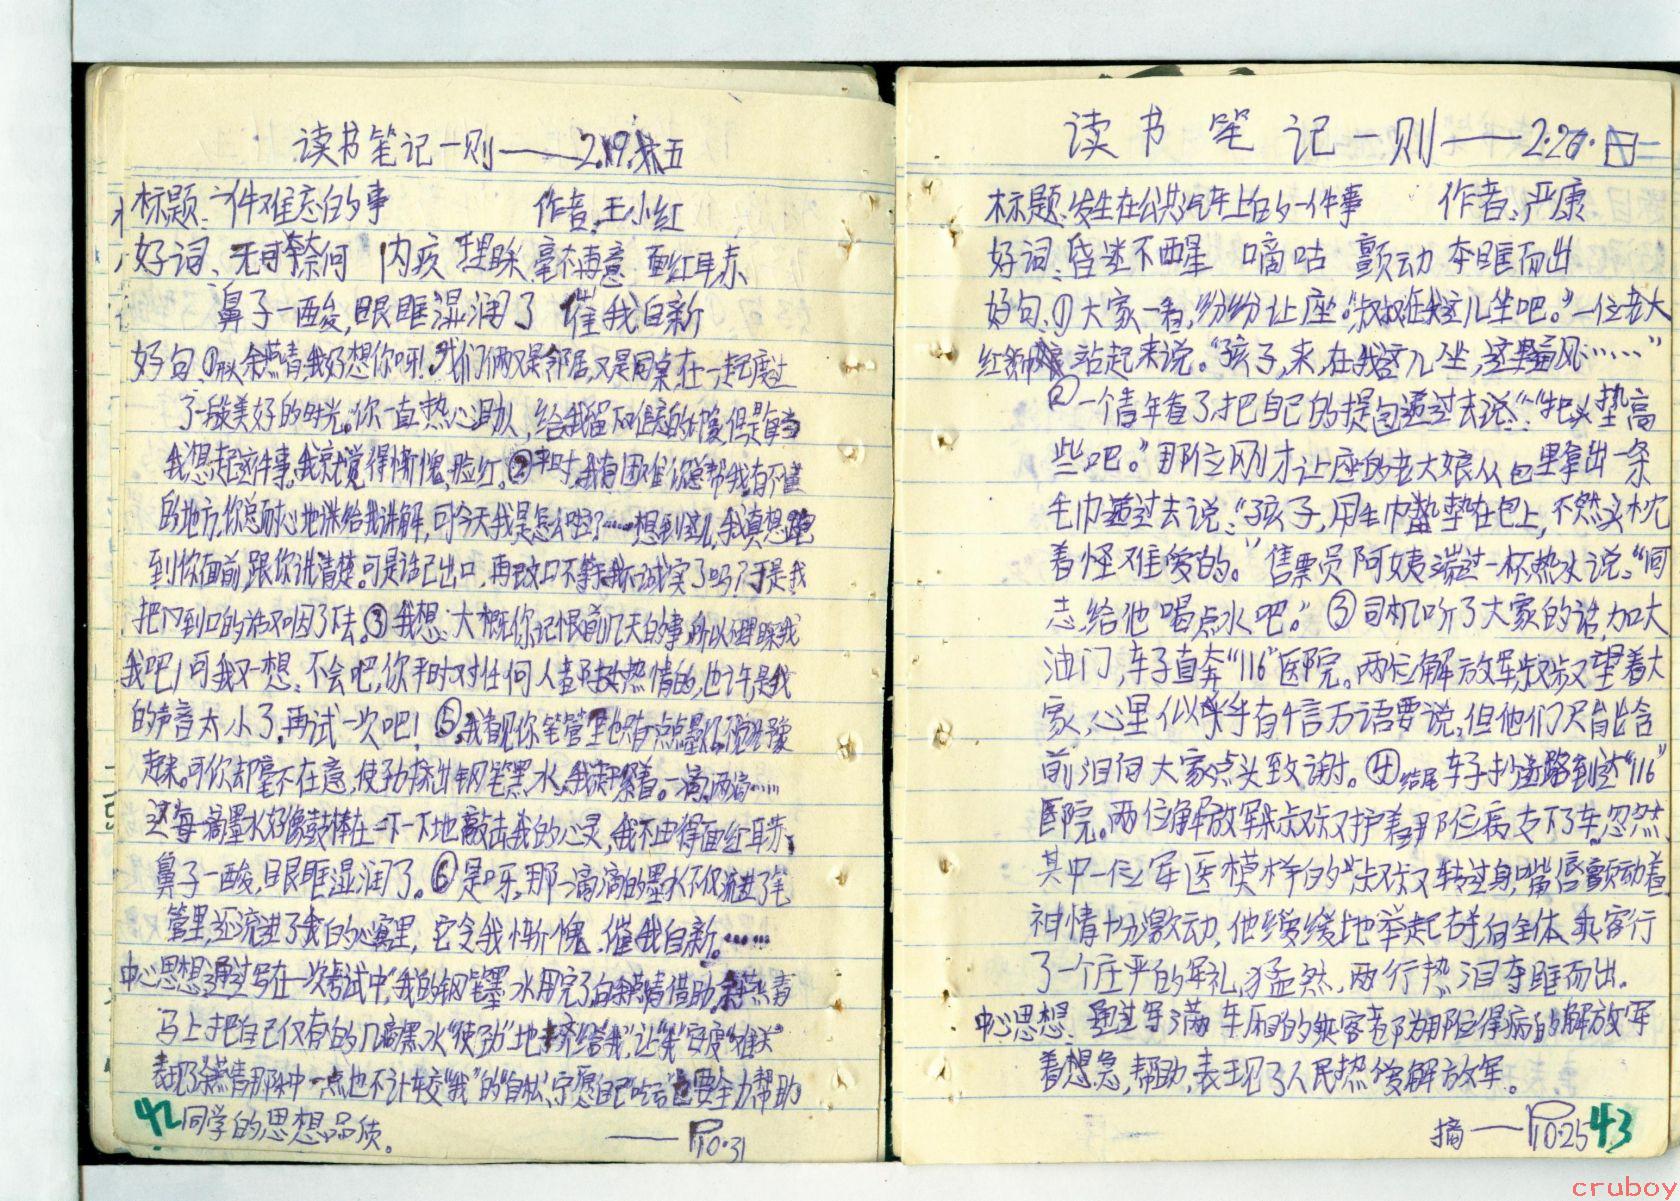 读书笔记一则——2.19.五
标题:一件难忘的事 作者:王小红
好词、无可奈何 内疚 理睬 毫不再意 面红耳赤
鼻子一酸,眼眶湿润了 催我自新
好句①余燕青,我好想你呀!我们俩又是邻居,又是同桌在一起度过
了一段美好的时光。你一直热心助人,给我留下但是每当
我想起这件事,我就觉得惭愧,脸红。②平时,我有困难你总帮我有不懂
的地方,你总耐心地讲给我讲解,可今天我是怎么啦?……想到这儿,我真想跑
到你面前,跟你说清楚。可是话已出口,再改口不等于我不诚实了吗?于是我
把到口的话又咽了下去。③我想:大概你记恨前几天的事,所以不理睬我
我吧!可我又一想:不会吧,你平时对任何人都挺热情的,也许是我
的声音太小了,再试一次吧!⑤我看见你笔管里也只有一点点墨水,
起来。可你却毫不在意,使劲挤出钢笔墨水,我接着。一滴,两滴……
这每一滴墨水好像鼓棒在一下一下地敲击我的心灵,我不由得面红耳赤,
鼻子一酸,眼眶湿润了。⑥是呀,那一滴滴的墨水不仅流进了笔
管里,还流进了我的心窝里,它令我惭愧,催我自新。……
中心思想:通过写在一次考试中,"我的钢笔墨水用完了,向余燕青借助,余燕青
马上把自己仅有的几滴墨水"使劲"地挤给我",让"我"安度"难关"
表现了余燕青那种一点也不计较"我"的"自私",宁愿自己"吃亏"也要全力帮助
42同学的思想品质。 ——P10.31
读书笔记一则——2.20.日
标题:发生在公共汽车上的一件事 作者:严康
好词:昏迷不醒 嘀咕 颤动 夺眶而出
好句:①大家一看,纷纷让座。"叔叔在我这儿坐吧。"一位老大
娘站起来说。"孩子,来,在我这儿坐,这里……"
②一个青年看了把自己的提包递过去说:"把头垫高
些吧。"那位刚才让座的老大娘从包里拿出一条
毛巾递过去说:"孩子,用毛巾垫在包上,不然头枕
着怪难受的。"售票员阿姨端过一杯热水说:"同
志,给他喝点水吧。"③司机听了大家的话,加大
油门,车子直奔"116"医院。两位解放军叔叔望着大
家,心里似乎有千言万语要说,但他们只能含
着泪向大家点头致谢。④结尾车子抄近路到达"116"
医院。两位解放军叔叔护着那位病友下了车,忽然
其中一位军医模样的叔叔又转过身,嘴唇颤动着
神情十分激动,他缓缓地举起右手向全体乘客行
了一个庄严的军礼,猛然,两行热泪夺眶而出。
中心思想:通过写满车厢的乘客都为那位得病的解放军
着想急,帮助,表现了人民热爱解放军。
摘——P10.25 43
cruboy